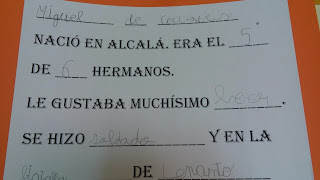 Miguel de cervantes.
NACIÓ EN ALCALÁ. ERA EL 5
DE 6 HERMANOS.
LE GUSTABA MUCHÍSIMO leer.
SE HIZO soldado Y EN LA
DE Lepanto